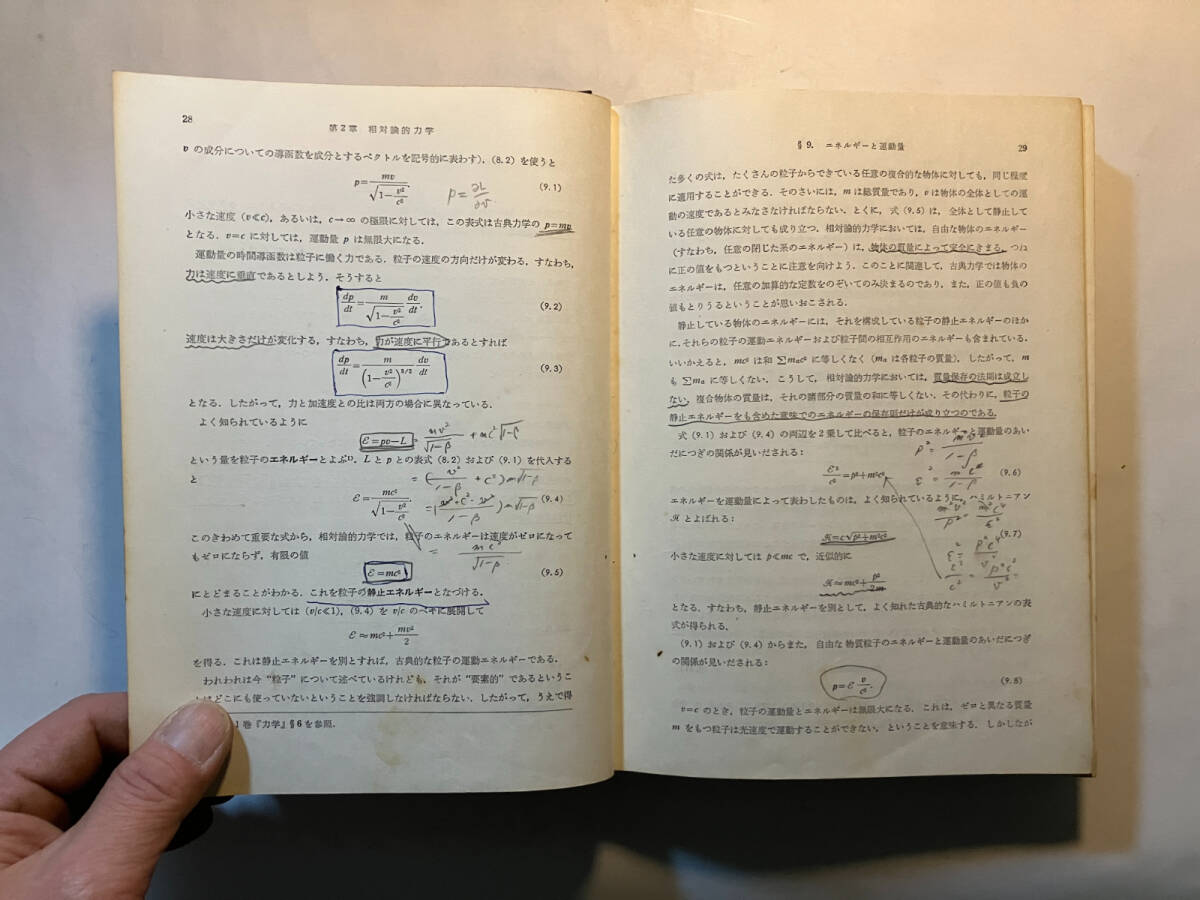 28
第2章 相対論的力学
v の成分についての導函数を成分とするベクトルを記号的に表わす). (8.2) を使うと
p = mv / √(1 - v²/c²). (9.1)
p = ∂L/∂v
小さな速度 (v≪c), あるいは, c→∞ の極限に対しては, この表式は古典力学の p=mv
となる. v=c に対しては, 運動量 p は無限大になる.
運動量の時間導函数は粒子に働く力である. 粒子の速度の方向だけが変わる. すなわち,
力は速度に垂直であるとしよう. そうすると
dp/dt = m / √(1 - v²/c²) dv/dt. (9.2)
速度は大きさだけが変化する, すなわち, 力が速度に平行であるとすれば
dp/dt = m / (1 - v²/c²)^{3/2} dv/dt (9.3)
となる. したがって, 力と加速度との比は両方の場合に異なっている.
よく知られているように
ℰ=pv−L = mv²/√1-β + mc²√1-β
という量を粒子のエネルギーとよぶ¹⁾. L と p との表式 (8.2) および (9.1) を代入する
と
= (v²/1-β + c²) m√1-β
ℰ = mc² / √(1 - v²/c²). (9.4)
= (v²+c²-v²/1-β) m√1-β
このきわめて重要な式から, 相対論的力学では, 粒子のエネルギーは速度がゼロになって
もゼロにならず, 有限の値
= mc²/√1-β
ℰ=mc² (9.5)
にとどまることがわかる. これを粒子の静止エネルギーとなづける.
小さな速度に対しては (v/c≪1), (9.4) を v/c のベキに展開して
ℰ≈mc²+mv²/2
を得る. これは静止エネルギーを別とすれば, 古典的な粒子の運動エネルギーである.
われわれは今 “粒子” について述べているけれども, それが “要素的” であるというこ
とはどこにも使っていないということを強調しなければならない. したがって, うえで得
1巻『力学』§6を参照.
§9. エネルギーと運動量
29
た多くの式は, たくさんの粒子からできている任意の複合的な物体に対しても, 同じ程度
に適用することができる. そのさいには, m は総質量であり, v は物体の全体としての運
動の速度であるとみなさなければならない. とくに, 式 (9.5) は, 全体として静止して
いる任意の物体に対しても成り立つ. 相対論的力学においては, 自由な物体のエネルギー
(すなわち, 任意の閉じた系のエネルギー) は, 物体の質量によって完全にきまる, つね
に正の値をもつということに注意を向けよう. このことに関連して, 古典力学では物体の
エネルギーは, 任意の加算的な定数をのぞいてのみ決まるのであり, また, 正の値も負の
値もとりうるということが思いおこされる.
静止している物体のエネルギーには, それを構成している粒子の静止エネルギーのほか
に, それらの粒子の運動エネルギーおよび粒子間の相互作用のエネルギーも含まれている.
いいかえると, mc² は和 ∑mₐc² に等しくなく (mₐ は各粒子の質量), したがって, m
も ∑mₐ に等しくない. こうして, 相対論的力学においては, 質量保存の法則は成立し
ない. 複合物体の質量は, それの諸部分の質量の和に等しくない. その代わりに, 粒子の
静止エネルギーをも含めた意味でのエネルギーの保存則だけが成り立つのである.
式 (9.1) および (9.4) の両辺を2乗して比べると, 粒子のエネルギーと運動量のあい
だにつぎの関係が見いだされる:
p² = m²v²/1-β
ℰ²/c² = p²+m²c². (9.6)
ε² = m²c⁴/1-β
エネルギーを運動量によって表わしたものは, よく知られているように, ハミルトニアン
ℋ とよばれる:
m²v²/p² = m²c⁴/ε²
ℋ=c√(p²+m²c²). (9.7)
小さな速度に対しては p≪mc で, 近似的に
ε² = p²c⁴/v²
ℋ≈mc²+p²/2m
ε²/c² = p²c²/v² =
となる. すなわち, 静止エネルギーを別として, よく知れた古典的なハミルトニアンの表
式が得られる.
(9.1) および (9.4) からまた, 自由な物質粒子のエネルギーと運動量のあいだにつぎ
の関係が見いだされる:
p=ℰ v/c². (9.8)
v=c のとき, 粒子の運動量とエネルギーは無限大になる. これは, ゼロと異なる質量
m をもつ粒子は光速度で運動することができない, ということを意味する. しかしなが